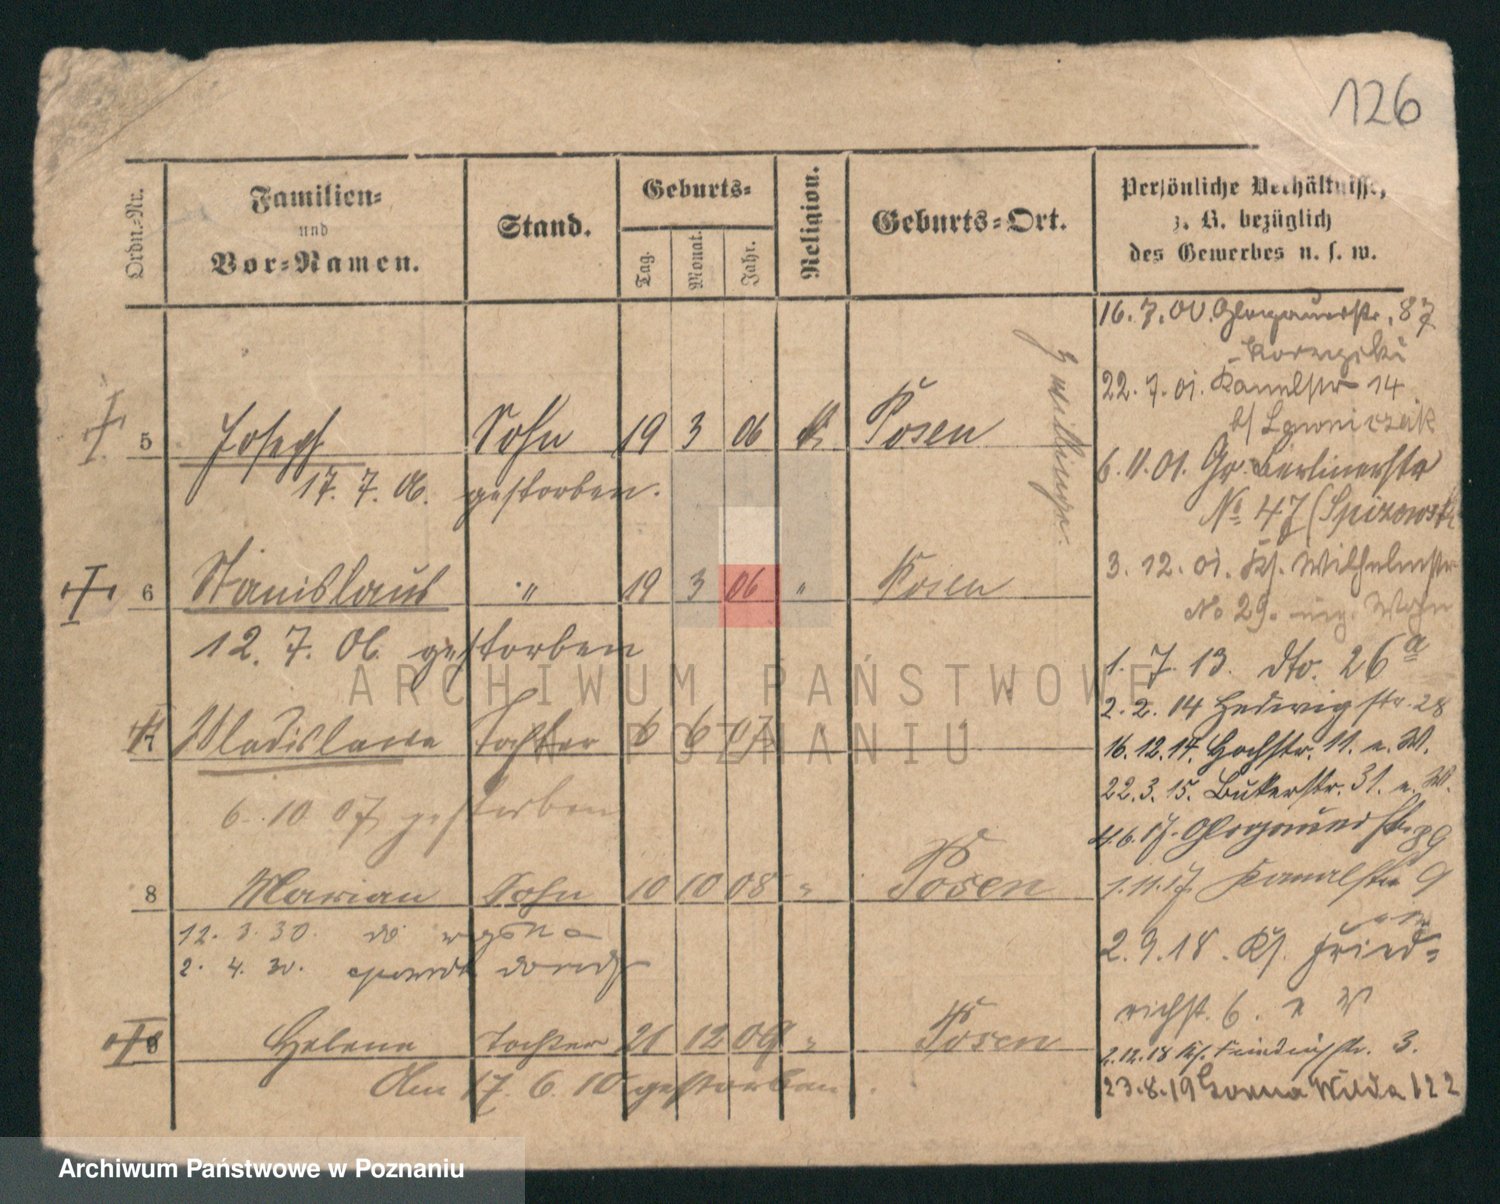 126
Ordn.-Nr.
Familien-
und
Vor-Namen.
Stand.
Geburts-
Tag.
Monat.
Jahr.
Religion.
Geburts-Ort.
Persönliche Verhältnisse,
z. B. bezüglich
des Gewerbes u. s. w.
5 Joseph Sohn 19 3 06 k. Posen
17. 7. 06. gestorben.
6 Stanislaus " 19 3 06 " Posen
12. 7. 06. gestorben
Zwillinge.
7 Wladislawa Tochter 6 6 07
6. 10 07 gestorben
8 Marian Sohn 10 10 08 " Posen
12. 3. 30. do
2. 4. 30.
9 Helene Tochter 21 12 09 " Posen
Am 17. 6. 10 gestorben.
16. 7. 00. Glogauerstr. 87
22. 7. 01. Kanalstr 14
b/
6. 11. 01. Gr. Berlinerstr
No 47 (Spizewski
3. 12. 01. Kl. Wilhelmstr
No 29. eig. Wohn
1. 7. 13. dto. 26a
2. 2. 14 Hedwigstr. 28
16. 12. 14. Hochstr. 11. e. W.
22. 3. 15. Bukerstr. 31. e. W.
4. 6. 17. Glogauerstr. 89
1. 11. 17. Kanalstr 9
2. 9. 18. Kl. Fried-
richst. 6. e W
2. 12. 18 Kl. Friedrichstr. 3.
23. 8. 19 Gorna Wilda 122
ARCHIWUM PAŃSTWOWE
W POZNANIU
Archiwum Państwowe w Poznaniu